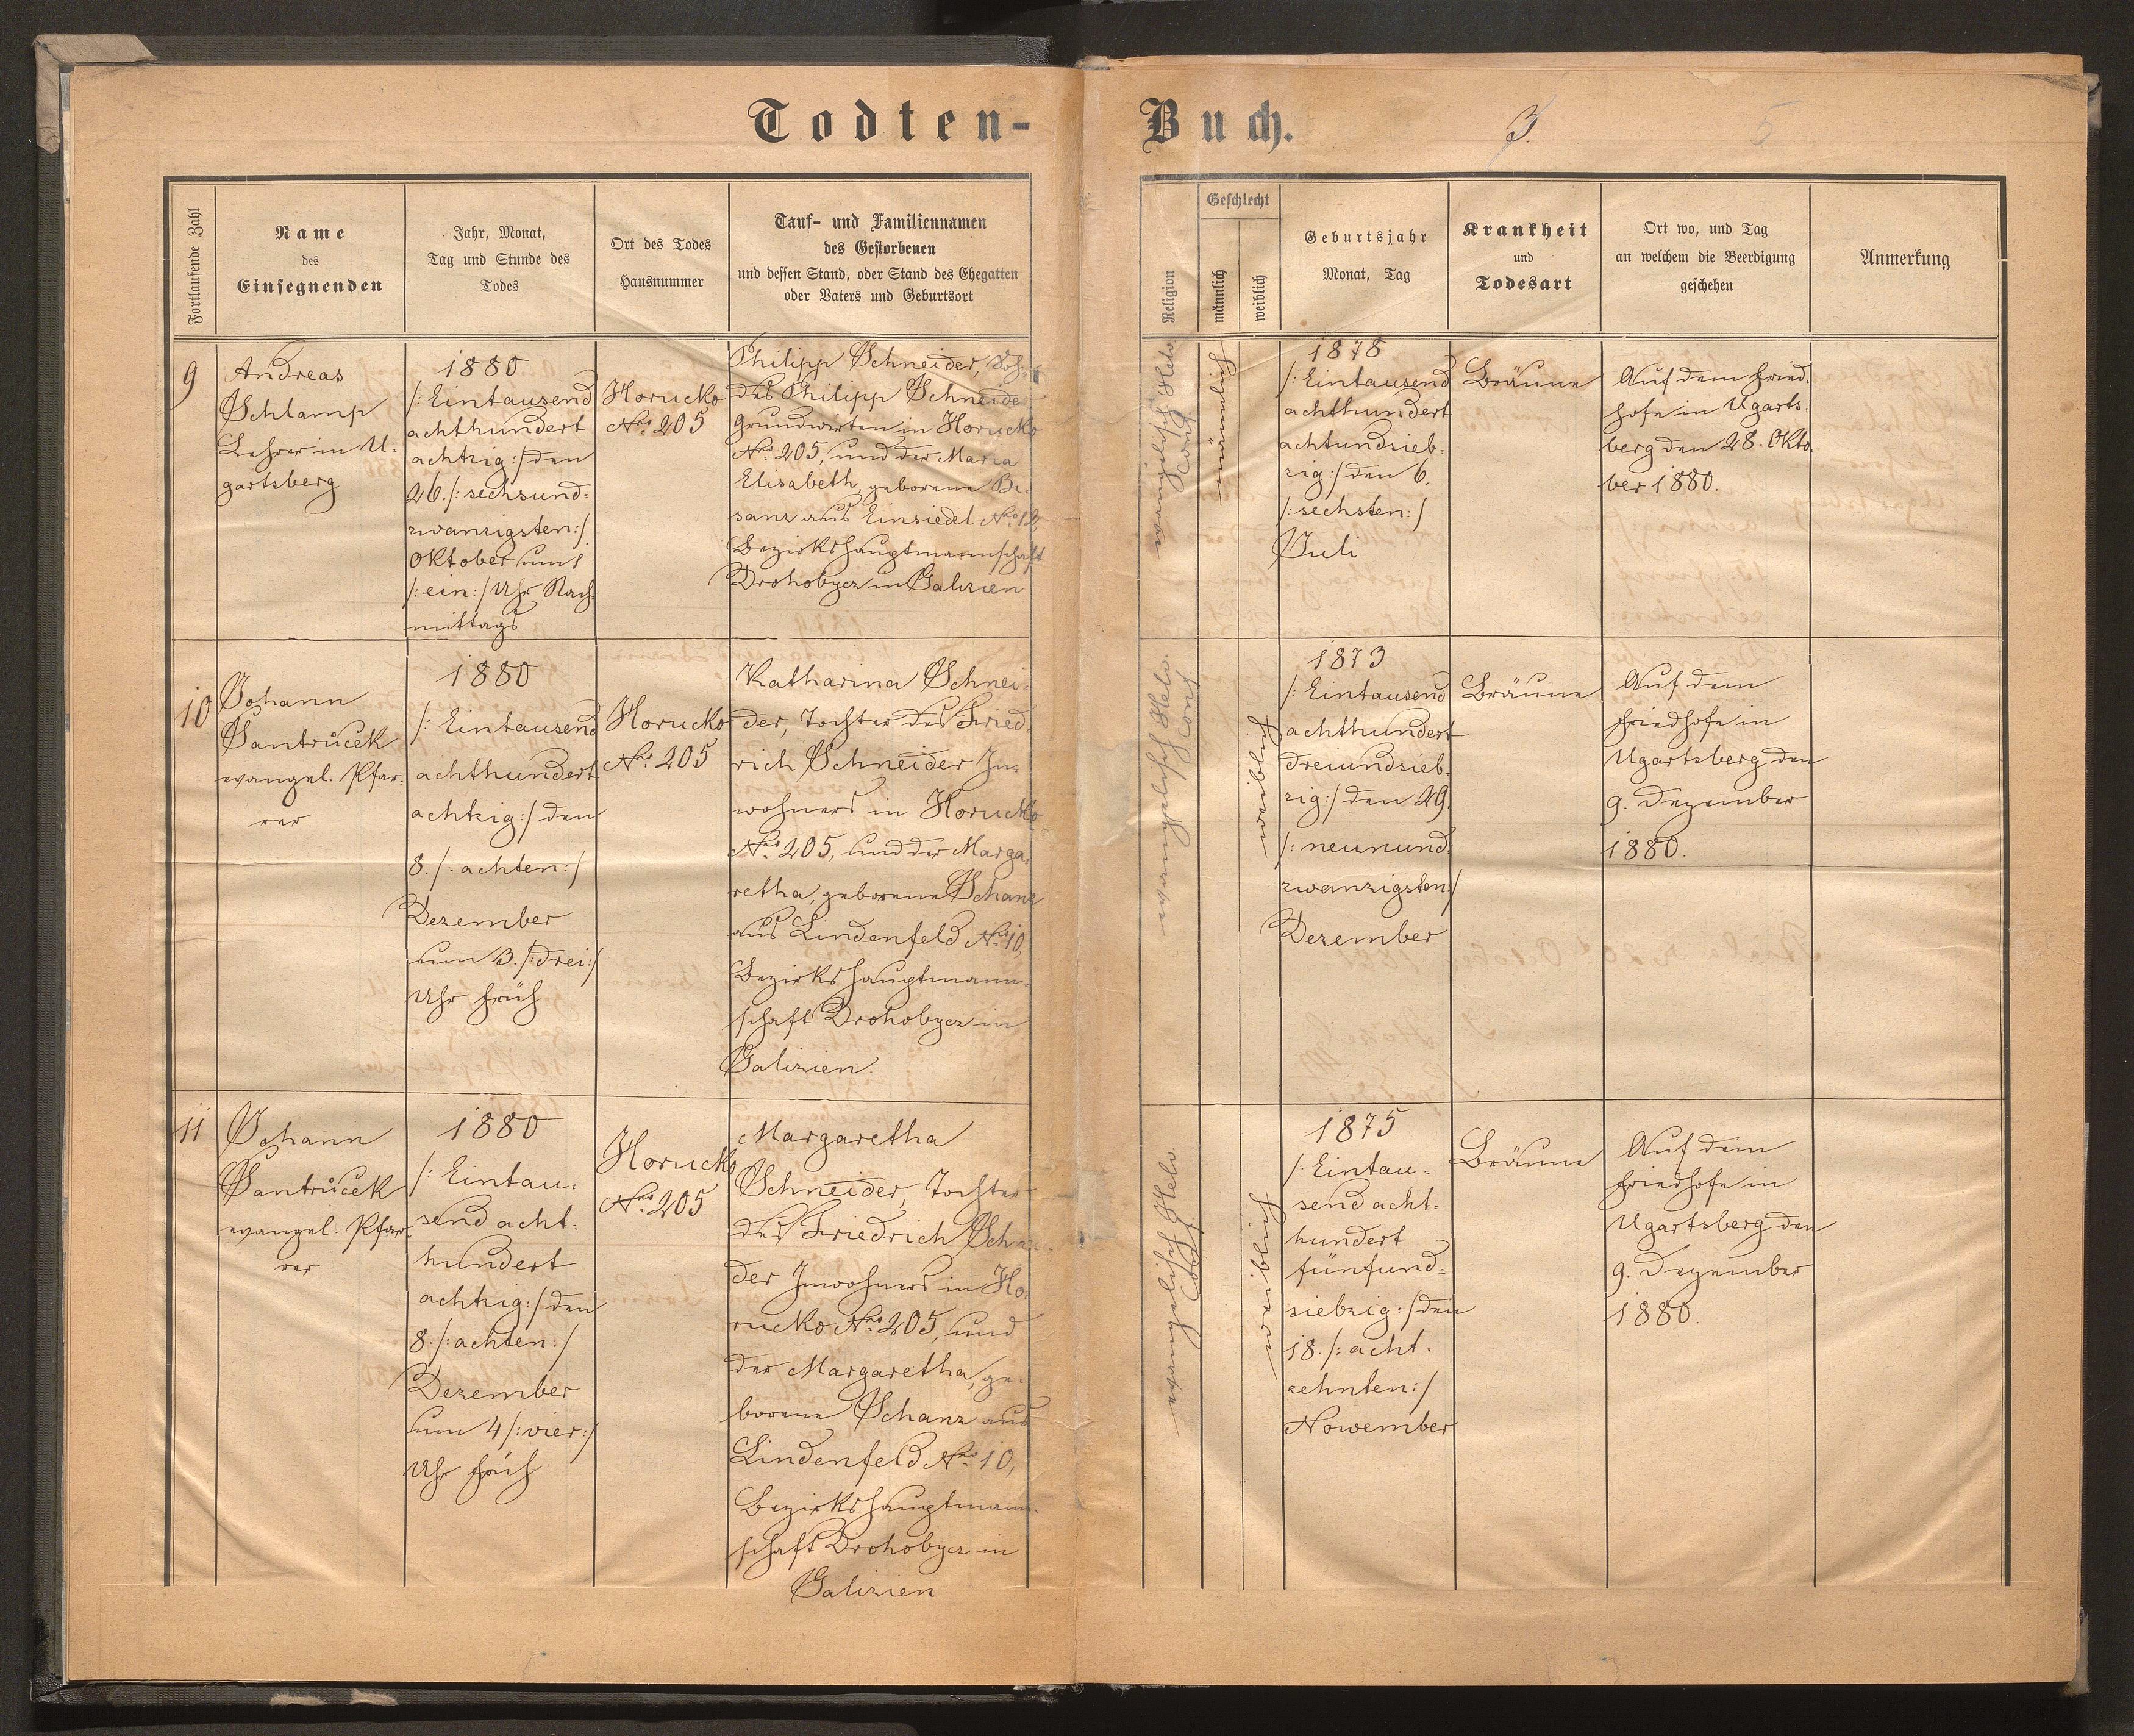 Todten-
Buch.
3.
5
Fortlaufende Zahl
Name
des
Einsegnenden
Jahr, Monat,
Tag und Stunde des
Todes
Ort des Todes
Hausnummer
Tauf- und Familiennamen
des Gestorbenen
und dessen Stand, oder Stand des Ehegatten
oder Vaters und Geburtsort
Religion
Geschlecht
männlich
weiblich
Geburtsjahr
Monat, Tag
Krankheit
und
Todesart
Ort wo, und Tag
an welchem die Beerdigung
geschehen
Anmerkung
9
Andreas
Schlamp
Lehrer in U.
gartsberg
1880
/: Eintausend
achthundert
achtzig :/ den
26. /: sechsund=
zwanzigsten :/
Oktober um 1
/: ein :/ Uhr Nach
mittags
Horucko
Nro 205
Philipp Schneider,
des Philipp Schneide
Grundwirten in Horucko
Nro 205, und der Maria
Elisabeth, geborene Be.
sanz aus Einsiedel Nro 12,
Bezirkshauptmannschaft
Drohobycz in Galizien
evangelisch Helv.
Conf.
männlich
1878
/: Eintausend
achthundert
achtundsieb=
zig :/ den 6.
/: sechsten :/
Juli
Bräune
Auf dem Fried.
hofe in Ugarts.
berg den 28. Okto
ber 1880.
10
Johann
Šantrůcek
evangel. Pfar.
rer
1880
/: Eintausend
achthundert
achtzig :/ den
8. /: achten :/
Dezember
um 3. /: drei :/
Uhr früh
Horucko
Nro 205
Katharina Schnei=
der, Tochter des Fried.
rich Schneider In=
wohners in Horucko
Nro 205, und der Marga=
retha, geborene Schanz
aus Lindenfeld Nro 10,
Bezirkshauptmann=
schaft Drohobycz in
Galizien
evangelisch Helv.
Conf
weiblich
1873
/: Eintausend
achthundert
dreiundsieb=
zig :/ den 29.
/: neunund=
zwanzigsten :/
Dezember
Bräune
Auf dem
Friedhofe in
Ugartsberg den
9. Dezember
1880.
11
Johann
Šantrůcek
evangel. Pfar=
rer
1880
/: Eintau=
send acht=
hundert
achtzig :/ den
8. /: achten :/
Dezember
um 4 /: vier :/
Uhr früh
Horucko
Nro 205
Margaretha
Schneider, Tochter
des Friedrich
der Inwohners in Ho
rucko Nro 205, und
der Margaretha, ge=
borene Schanz aus
Lindenfeld Nro 10,
Bezirkshauptmann=
schaft Drohobycz in
Galizien
evangelisch Helv.
Conf.
weiblich
1875
/: Eintau=
send acht=
hundert
fünfund=
siebzig :/ den
18. /: acht=
zehnten :/
Nowember
Bräune
Auf dem
Friedhofe in
Ugartsberg den
9. Dezember
1880.